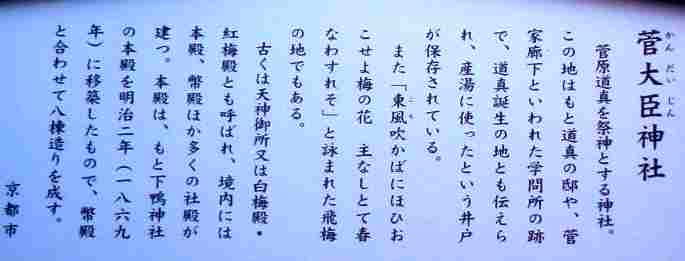 菅大臣神社
かんだいじん
菅原道真を祭神とする神社。
この地はもと道真の邸や、菅
家廊下といわれた学問所の跡
で、道真誕生の地とも伝えら
れ、産湯に使ったという井戸
が保存されている。
また「東風吹かばにほひお
こち
こせよ梅の花　主なしとて春
なわすれそ」と詠まれた飛梅
の地でもある。
古くは天神御所又は白梅殿・
紅梅殿とも呼ばれ、境内には
本殿、幣殿ほか多くの社殿が
建つ。本殿は、もと下鴨神社
の本殿を明治二年（一八六九
年）に移築したもので、幣殿
と合わせて八棟造りを成す。
京都市